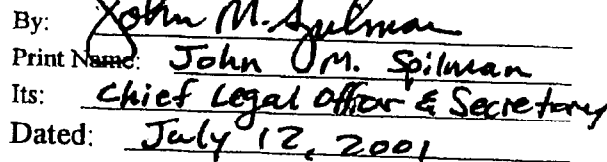 By: John M. Spilman
Print Name: John M. Spilman
Its: Chief Legal Officer & Secretary
Dated: July 12, 2001